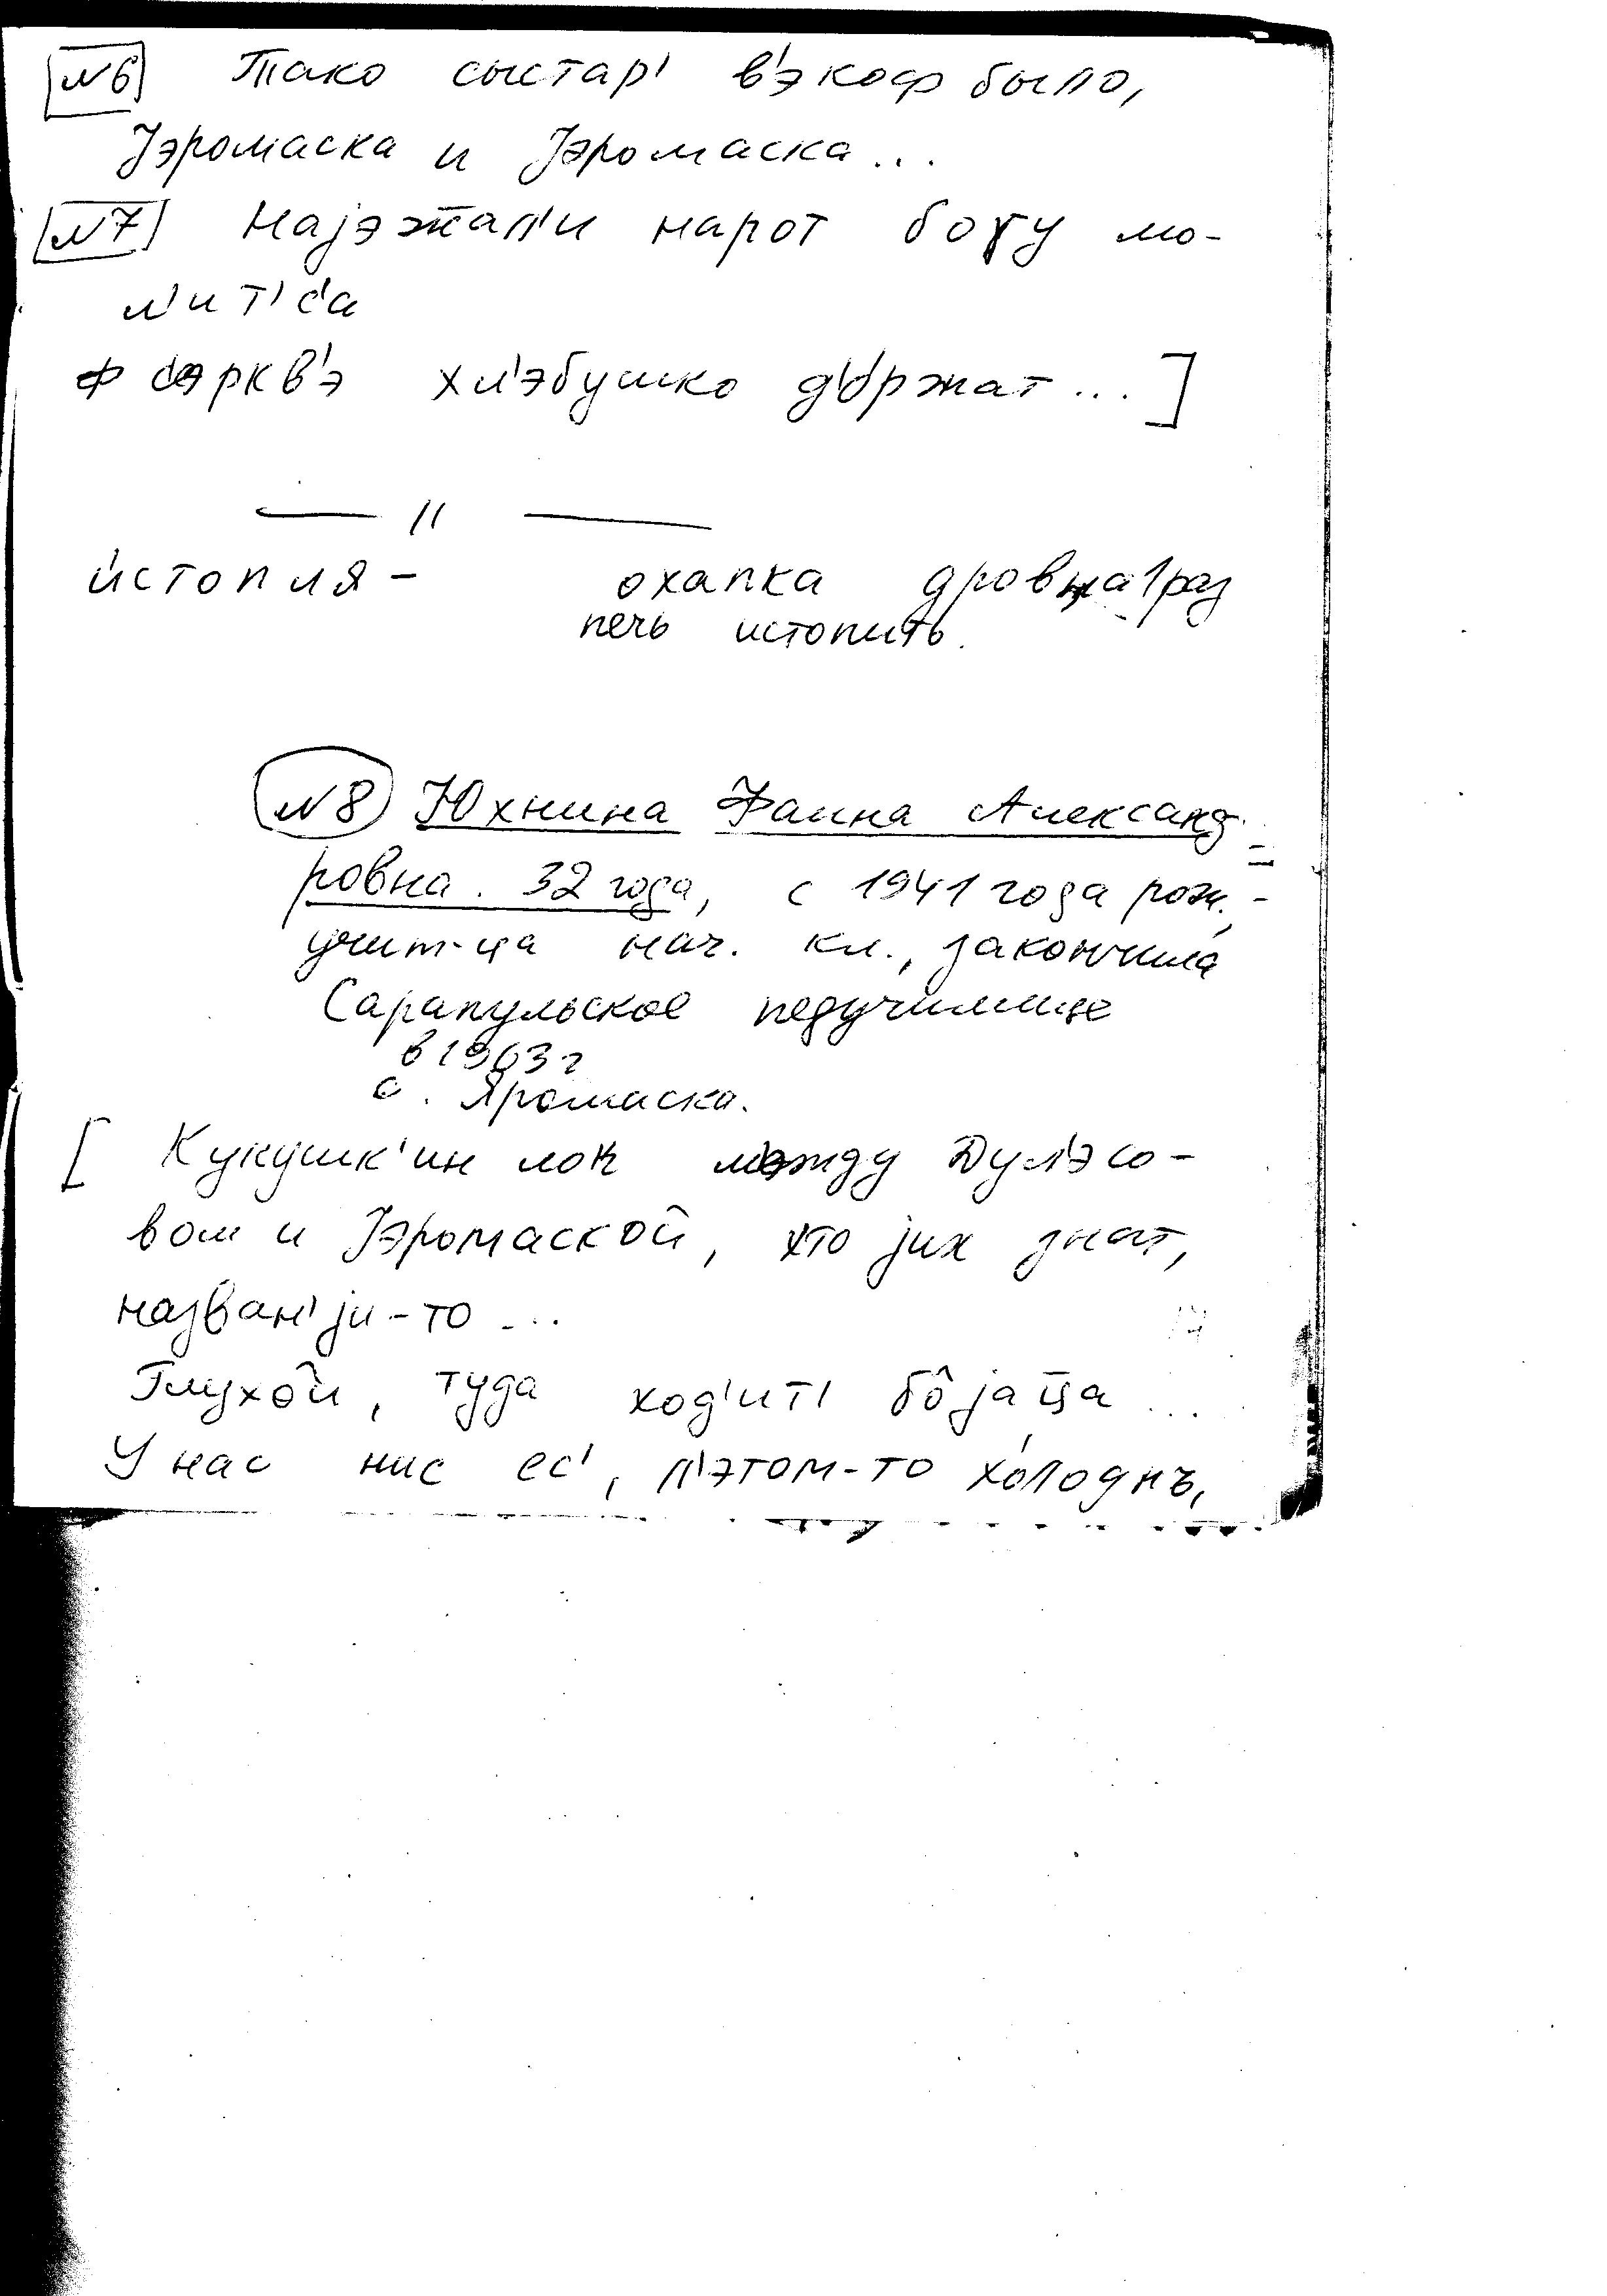 №6 Тако сыстар' в'экоф было,
Jэромаска и Jэромаска...
№7 наjэжал'и нарот боγу мо-
л'ит'с'а
ф с'эркв'э хл'эбушко д'о́ржат...]
— 11 —
и́стопля - охапка дров на 1 раз
печь истопить.
№8 Юхнина Фаина Александ-
ровна. 32 года, с 1941 года рож. -
учит-ца нач. кл., закончила
Сарапульское педучилище
в 1963 г
с. Яромаска.
[ Кукушк'ин лок м'эжду Дул'эсо-
вом и Jэромаской, хто jих знат,
назван'jи-то...
Глухой, туда ход'ит' бôjаца...
У нас нис ес', л'этом-то хо́лоднъ,